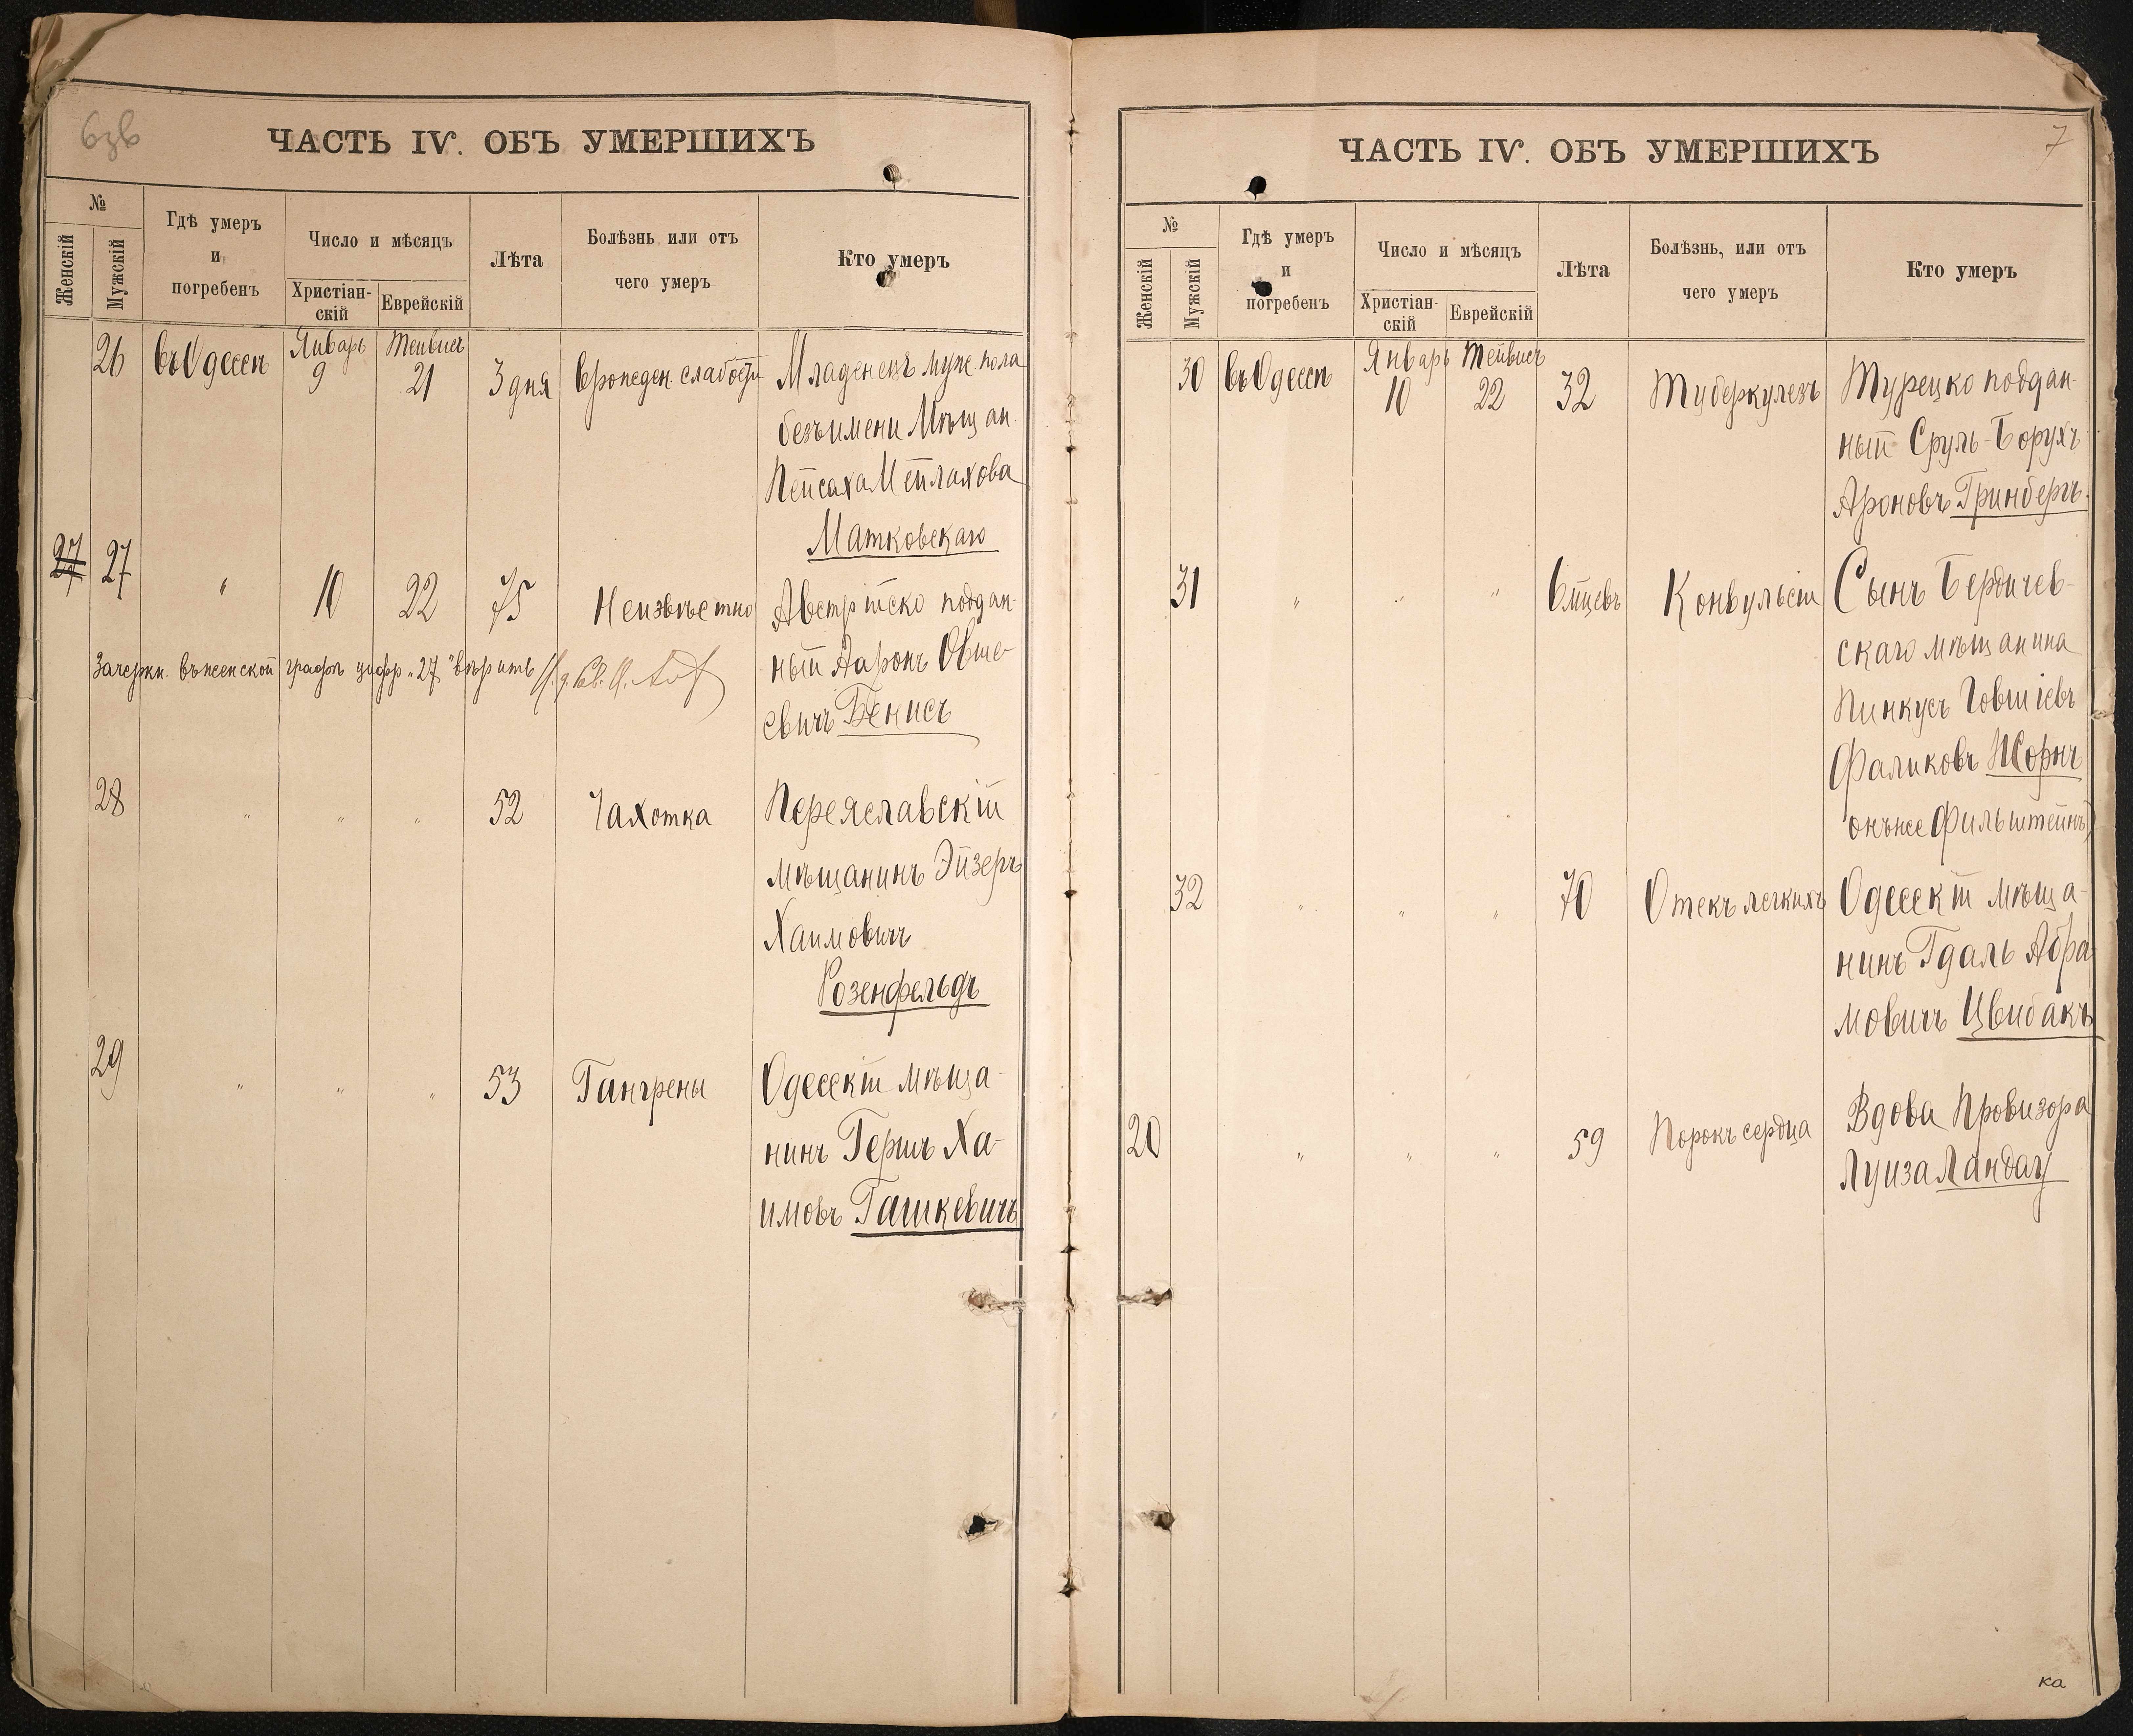 6зв
ЧАСТЬ IV. ОБЪ УМЕРШИХЪ
№
Женскій
Мужскій
Гдѣ умеръ
и
погребенъ
Число и мѣсяцъ
Христіан-
скій
Еврейскій
Лѣта
Болѣзнь или отъ
чего умеръ
Кто умеръ
26 въ Одессѣ Январь 9 Тейвисъ 21 3 дня врожден. слабости Младенецъ муж. пола
безъ имени Мѣщан.
Пейсаха Мейлахова
Матковскаго
27 27 " 10 22 75 Неизвѣстно Австрійско поддан-
ный Ааронъ Овше-
евичъ Бенисъ
Зачеркн. въ женской графѣ цифр. "27" вѣрить
28 " " " 52 Чахотка Переяславскій
мѣщанинъ Эйзеръ
Хаимовичъ
Розенфельдъ
29 " " " 53 Гангрены Одесскій мѣща-
нинъ Гершъ Ха-
имовъ Гашкевичъ
7
ЧАСТЬ IV. ОБЪ УМЕРШИХЪ
№
Женскій
Мужскій
Гдѣ умеръ
и
погребенъ
Число и мѣсяцъ
Христіан-
скій
Еврейскій
Лѣта
Болѣзнь, или отъ
чего умеръ
Кто умеръ
30 въ Одессѣ Январь 10 Тейвисъ 22 32 Туберкулезъ Турецко поддан-
ный Сруль-Борухъ
Ароновъ Гринбергъ.
31 " " " 6 мцевъ Конвульсіи Сынъ Бердичев-
скаго мѣщанина
Пинкусъ Іовшіевъ
Фаликовъ Жорнъ
онъ же Фильштейнъ)
32 " " " 70 Отекъ легкихъ Одесскій мѣща-
нинъ Гдаль Абра
мовичъ Цвибакъ
20 " " " 59 Порокъ сердца Вдова Провизора
Луиза Ландау
ка